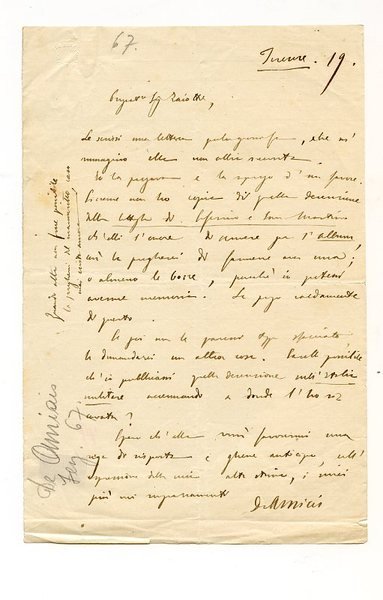 67.
Firenze. 19.
Le scrissi una lettera pochi giorni fa, che m'
immagino ella non abbia ricevuta.
Io la pregavo e la prego d'un favore.
Siccome non ho copia di quella descrizione
della battaglia di S. Martino
ch'ebbi l'onore di scrivere per l'album,
così la pregherei di farmene avere una;
o almeno le bozze, perché io potessi
averne memoria. La prego caldamente
di questo.
Se poi non le paresse troppo
le domanderei un'altra cosa. Sarebbe possibile
ch'io pubblicassi quella descrizione nell'Italia
militare accennando a donde l'ho
cavata?
Spero ch'ella vorrà favorirmi una
riga di risposta e gliene anticipo, coll'
espressione della mia alta stima, i miei
più vivi ringraziamenti
De Amicis
Quando ella non fosse possibile
la pregherei del manoscritto
De Amicis
67.